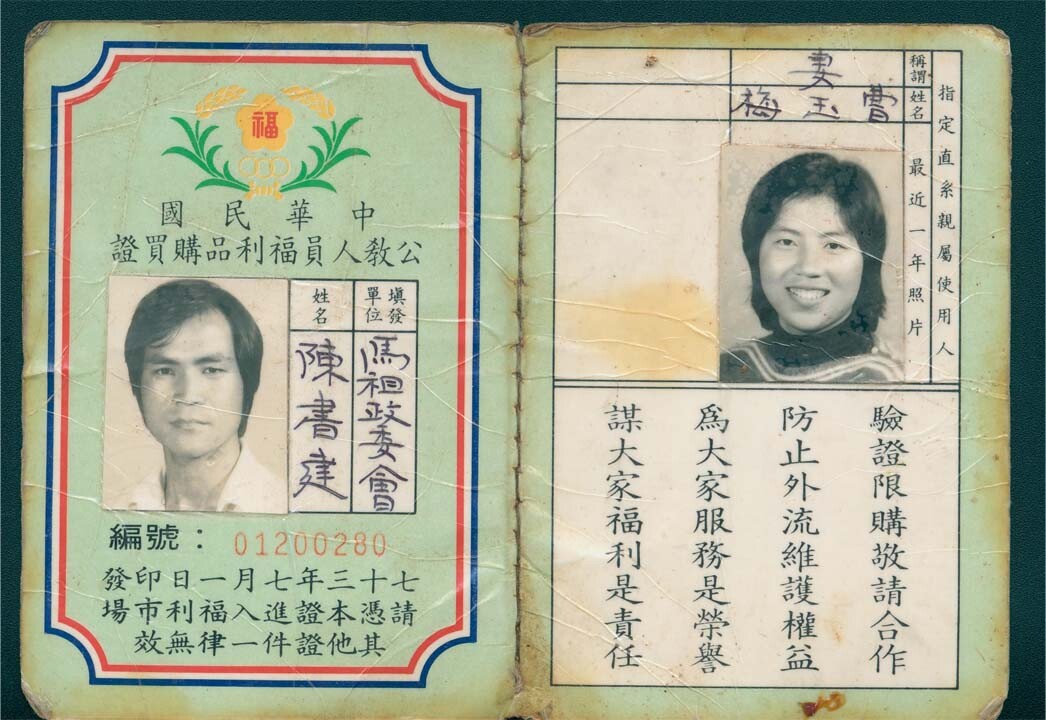 福
中華民國
公敎人員福利品購買證
填發單位
馬祖政委會
姓名
陳書建
編號：01200280
七十三年七月一日印發
請憑本證進入福利市場
其他證件一律無效
指定直系親屬使用人
稱謂
妻
姓名
曹玉梅
最近一年照片
驗證限購敬請合作
防止外流維護權益
爲大家服務是榮譽
謀大家福利是責任